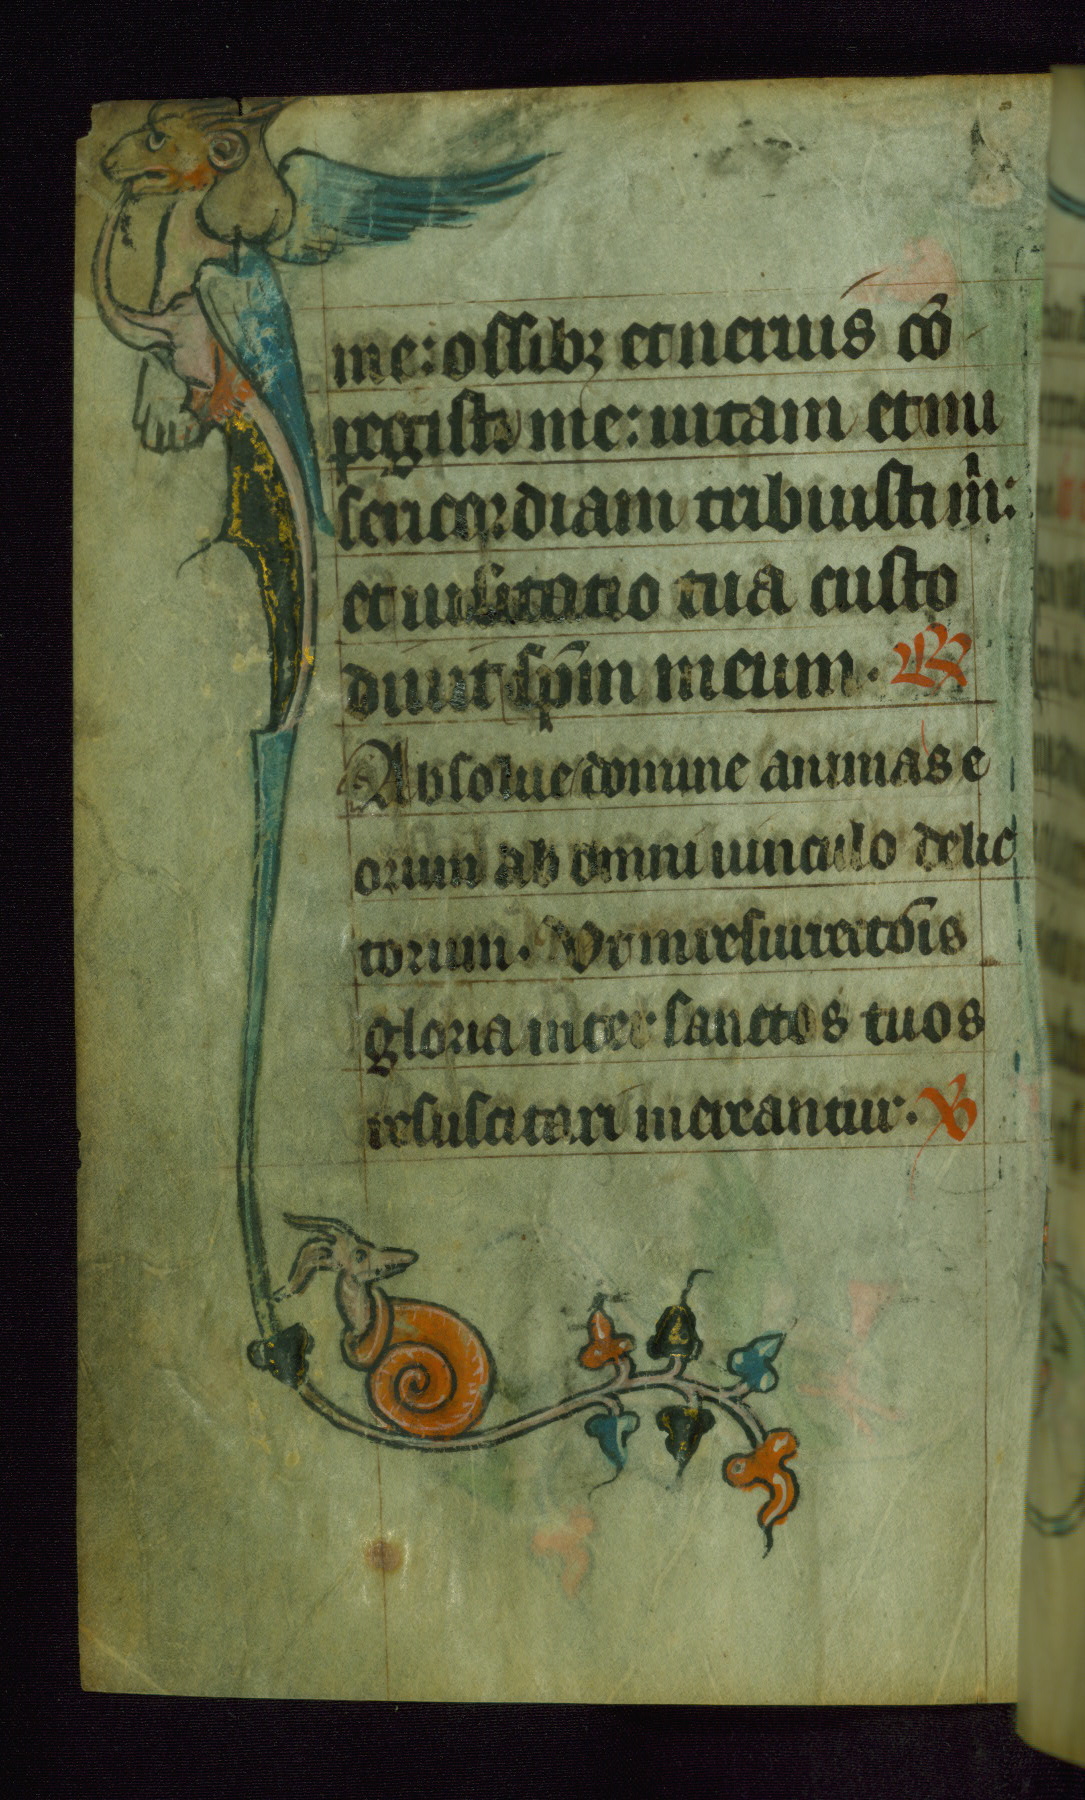 me: ossibꝫ et neruis cō
pegisti me: uitam et mi
sericordiam tribuisti m̄:
et uisitatio tua custo
diuit sp̄m meum. R
Absolue domine animas e
orum ab omni uinculo delic
torum. Vt in resurrectōis
gloria inter sanctos tuos
resuscitari mereantur. V